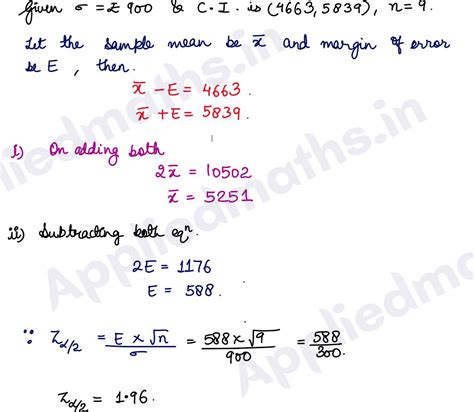 Given σ = ₤ 900 & C.I. is (4663, 5839), n = 9.
Let the sample mean be x̄ and margin of error
be E, then.
x̄ - E = 4663.
x̄ + E = 5839.
i) On adding both
2x̄ = 10502
x̄ = 5251
ii) Subtracting both eqⁿ.
2E = 1176
E = 588.
∵ Z_{α/2} = E × √n / σ = 588 × √9 / 900 = 588 / 300.
Z_{α/2} = 1.96.
Appliedmaths.in
Appliedmaths.in